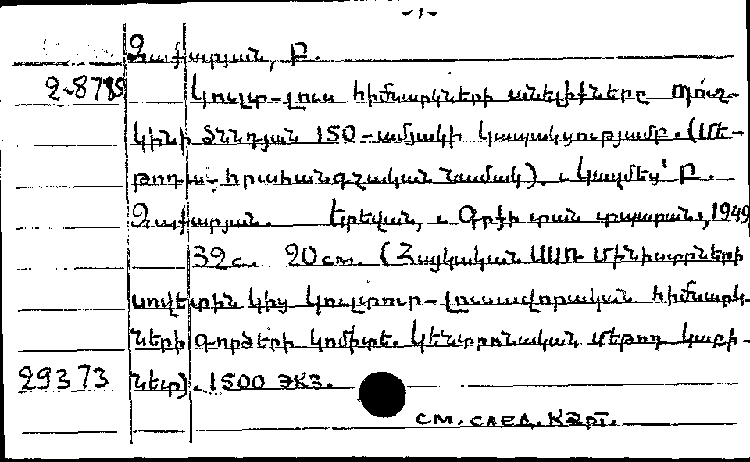 -1-
Զաքարյան, Բ.
2-8785 Կուլտ-լուս հիմնարկների անելիքները Պուշ-
կինի ծննդյան 150-ամյակի կապակցությամբ. (Մե-
թոդա-հրահանգչական նամակ). Կազմեց՝ Բ.
Զաքարյան. Երեվան, Գրքի պան տպարան, 1949
32с. 20см. (Հայկական ՍՍՌ Մինիստրների
սովետին կից կուլտուր-լուսավորական հիմնարկ-
ների գործերի կոմիտե. Կենտրոնական մեթոդ կաբի-
29373 նետ). 1500 экз.
см. след. карт.